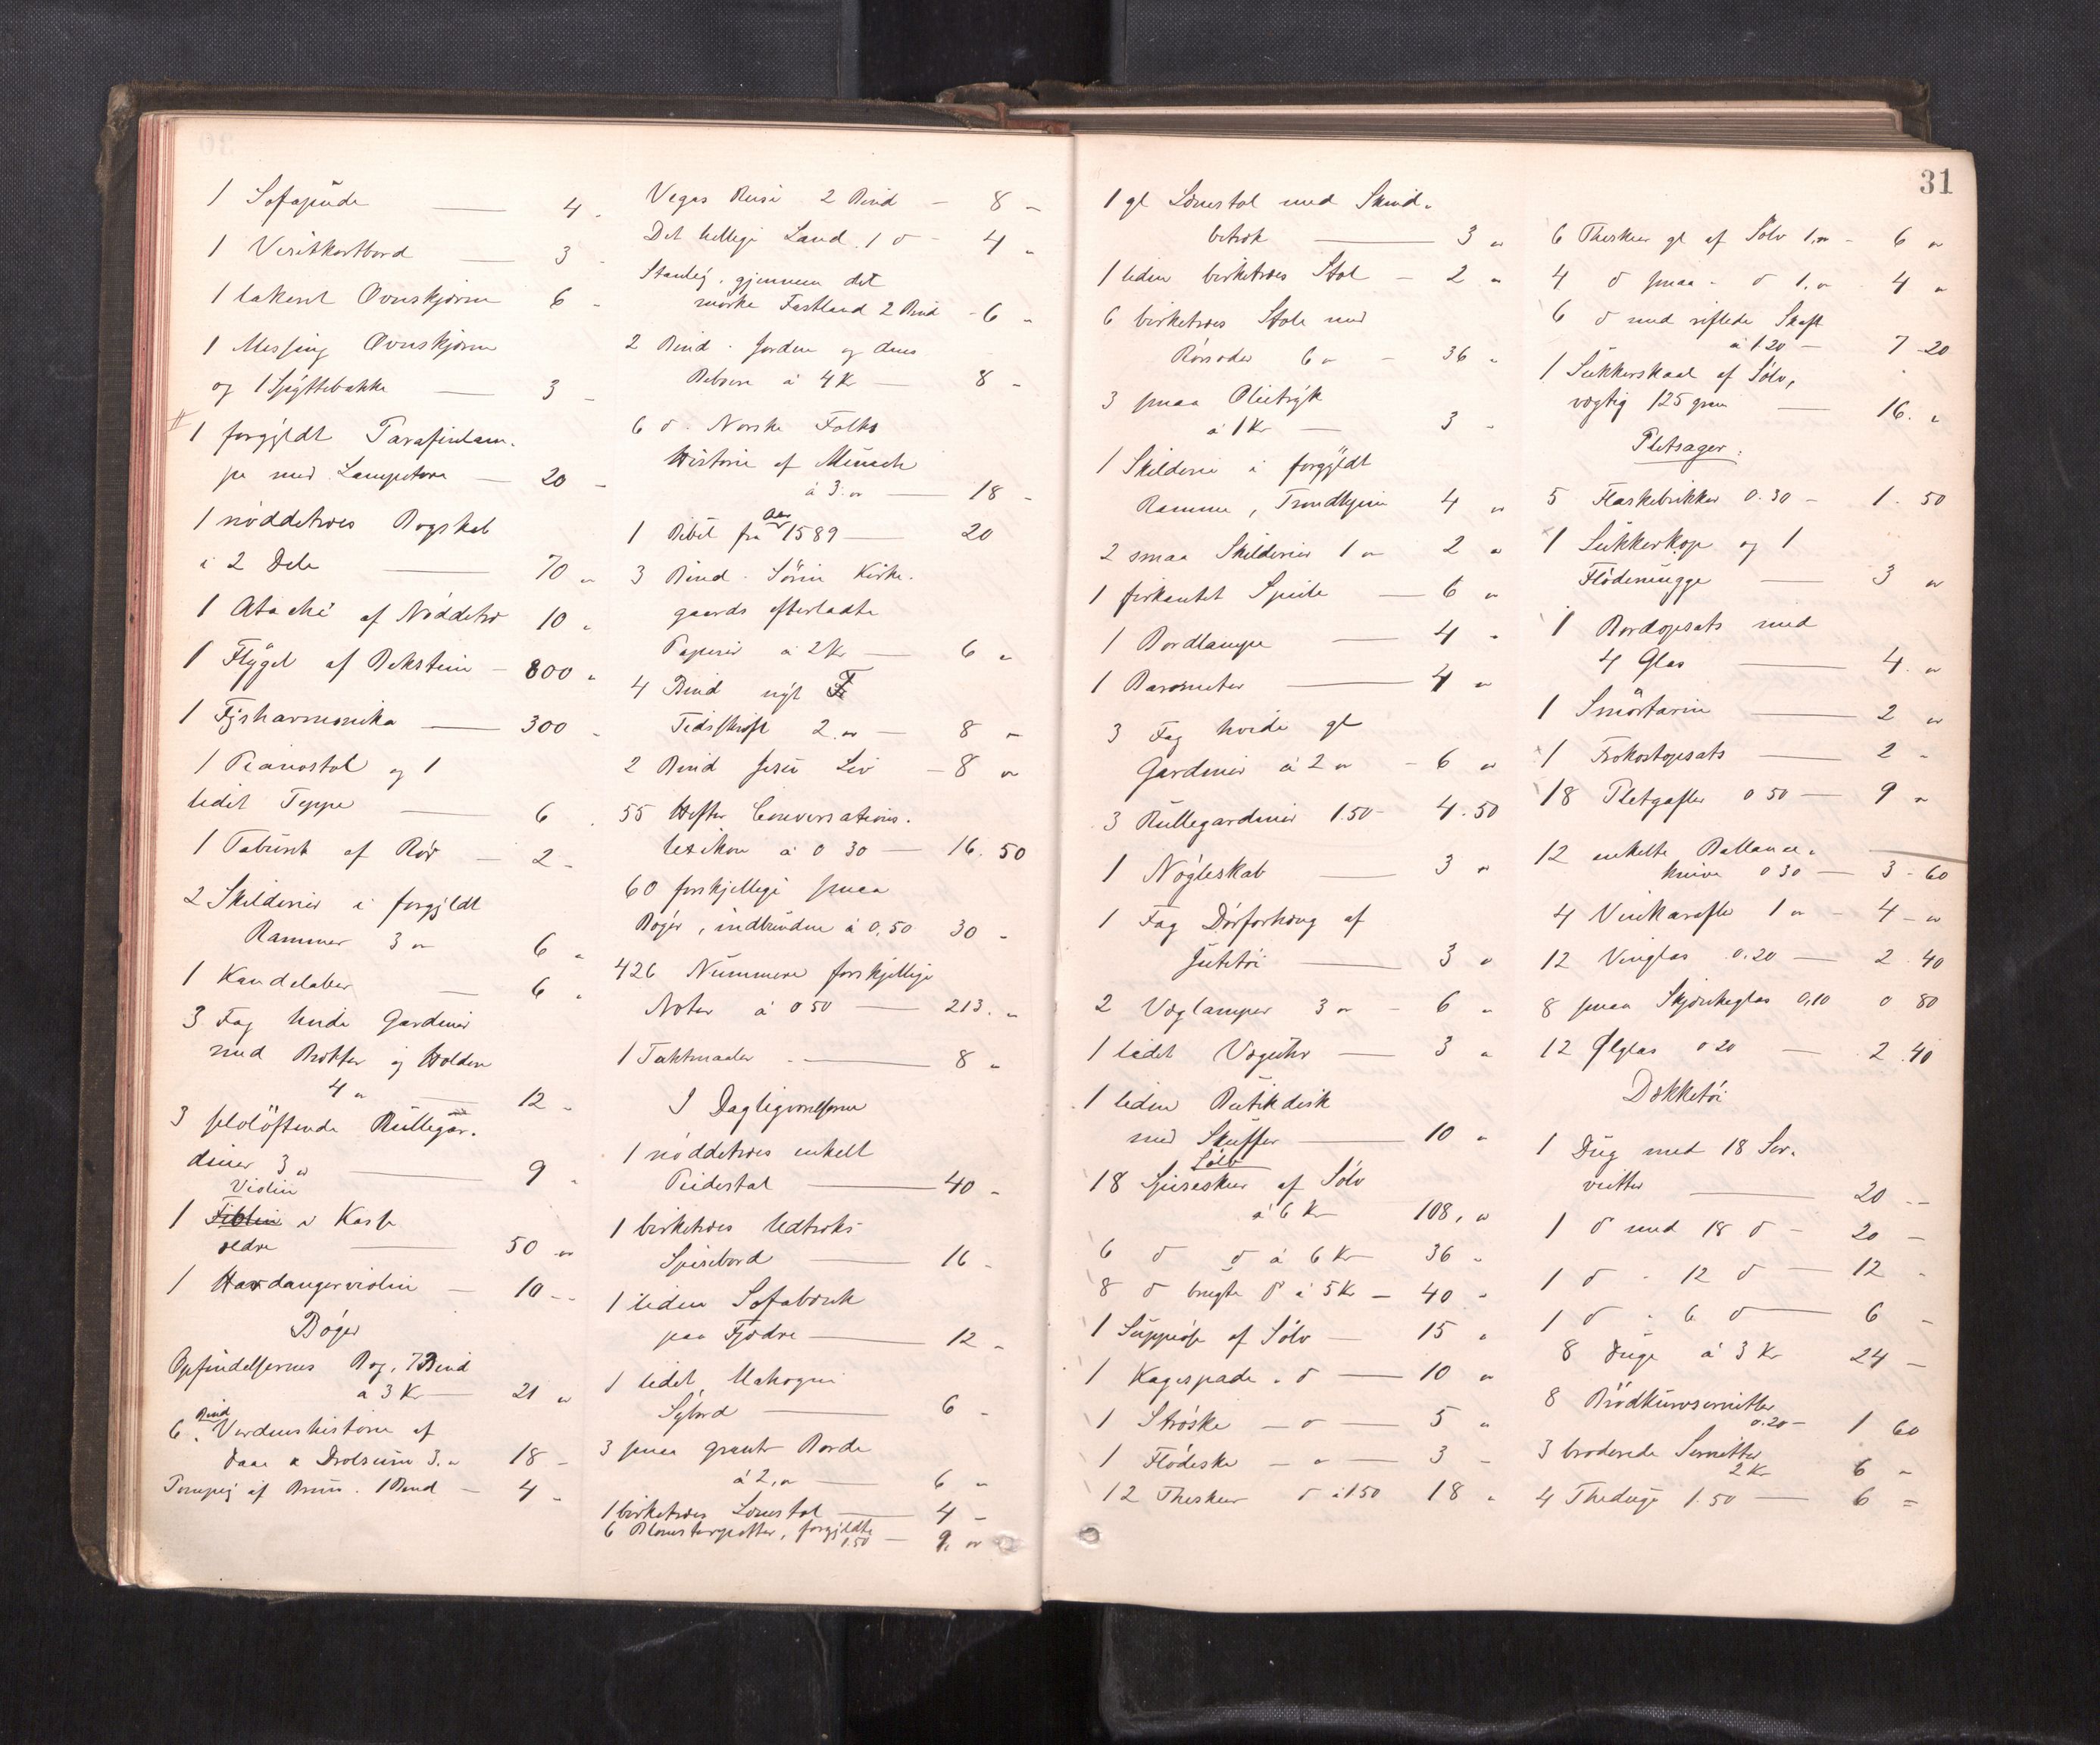 1 Sofapude — 4 -
1 Visitkortbord — 3 -
1 lakert Ovnskjærm 6 -
1 Messing Ovnskjærm
og 1 Spyttebakke — 3 -
1 forgyldt Parafinlam-
pe med Lampetore — 20 -
1 nøddetræs Bogskab
i 2 Dele — 70 "
1 Atache af Nøddetræ 10 "
1 Flygel af Bekstein — 800 "
1 Fysharmonika — 300 -
1 Pianostol og 1
lidet Teppe — 6 .
1 Taburet af Rør — 2 -
2 Skilderier i forgyldt
Rammer 3 " 6 "
1 Kandelaber — 6 "
3 Fag hvide Gardiner
med Brikker og Holdere
4 " — 12 -
3 selvløftende Rullegar-
diner 3 " — 9 "
Violin
1 Fiolin i Kasse
ældre — 50 "
1 Hardangerviolin — 10 --
Bøger
Opfindelsernes Bog, 7 Bind
a 3 Kr — 21 "
Bind
6 " Verdenshistorie af
Daae & Drolsum 3. " 18 -
Pompeji af Bruun . 1 Bind — 4 "
Vegas Reise 2 Bind — 8 -
Det hellige Land . 1 d - 4 "
Stanley . gjennem det
mørke Fastland 2 Bind - 6 "
2 Bind . Jorden og dens
Beboere à 4 Kr — 8 -
6 d . Norske Folks
Historie af Munch
à 3 " — 18 -
Aar
1 Bibel fra 1589 — 20
3 Bind . Sören Kirke-
gaards efterladte
Papirer à 2 Kr — 6 "
4 Bind nyt F
Tidsskrift 2 " — 8 -
2 Bind Jesu Liv — 8 "
55 Hefter Conversations-
lexikon à 0 30 — 16. 50
60 forskjellige smaa
Bøger, indbundne à 0,50 30 -
426 Nummere forskjellige
Noter à 0 50 — 213. "
1 Taktmaaler — 8 "
I Dagligværelserne
1 nøddetræs enkelt
Piedestal — 40 -
1 birketræs Udtræks-
Spisebord — 16 -
1 liden Sofabænk
paa Fjædre — 12 -
1 lidet Mahogni
Sybord — 6 -
3 smaa grønt Borde
à 2, " — 6 "
1 birketræs Lænestol — 4 -
6 Blomsterpotter, forgyldte
1.50 — 9, "
31
1 gl Lænestol med Skind-
betræk — 3 "
1 liden birketræs Stol — 2 "
6 birketræs Stole med
Rørsæder 6 " — 36 "
3 smaa Olietryk
à 1 Kr — 3 -
1 Skilderi i forgyldt
Ramme, Trondhjem 4 "
2 smaa Skilderier 1 " 2 "
1 firkantet Speile — 6 "
1 Bordlampe — 4 -
1 Barometer — 4 "
3 Fag hvide gl
Gardiner à 2 " - 6 "
3 Rullegardiner 1.50 - 4.50
1 Nøgleskab — 3 "
1 Fag Dørforhæng af
Jutetøi — 3 "
2 Væglamper 3 " - 6 "
1 lidet Vægeuhr — 3 "
1 liden Butikdisk
med Skuffer — 10 "
Sølv
18 Spiseskeer af Sølv
à 6 Kr 108, "
6 d d à 6 Kr 36 -
8 d brugte d à 5 Kr — 40 -
1 Suppeøse af Sølv — 15 "
1 Kagespade . d — 10 "
1 Strøske — d — 5 "
1 Flødeske — " — 3 -
12 Theskeer d à 1.50 18 "
6 Theskeer gl af Sølv 1," - 6 "
4 d smaa - d 1. " . 4 "
6 d med riflede Skaft
à 1 20 — 7 - 20
1 Sukkerskaal af Sølv,
vægtig 125 gram — 16. "
Pletsager.
5 Flaskebrikker 0.30 - 1. 50
1 Sukkerkop og 1
Flødemugge — 3 "
1 Bordopsats med
4 Glas — 4. "
1 Smörtærin — 2 "
1 Frokostopsats — 2 -
18 Pletgafler 0 50 — 9 "
12 enkelte Ballance-
knive 0 30 — 3 - 60
4 Vinkarafler 1 " - 4 - "
12 Vinglas 0.20 — 2 . 40
8 smaa Skjænkeglas 0,10 0 80
12 Ølglas 0 20 — 2 . 40
Dækketøi
1 Dug med 18 Ser-
vietter — 20 --
1 d med 18 d - 20 -
1 d - 12 d — 12 -
1 d - 6 d — 6 -
8 Duge à 3 Kr 24 -
8 Brödkurvservietter
0.20 - 1 60
3 broderede Servietter
2 Kr 6 "
4 Theduge 1.50 — 6 =